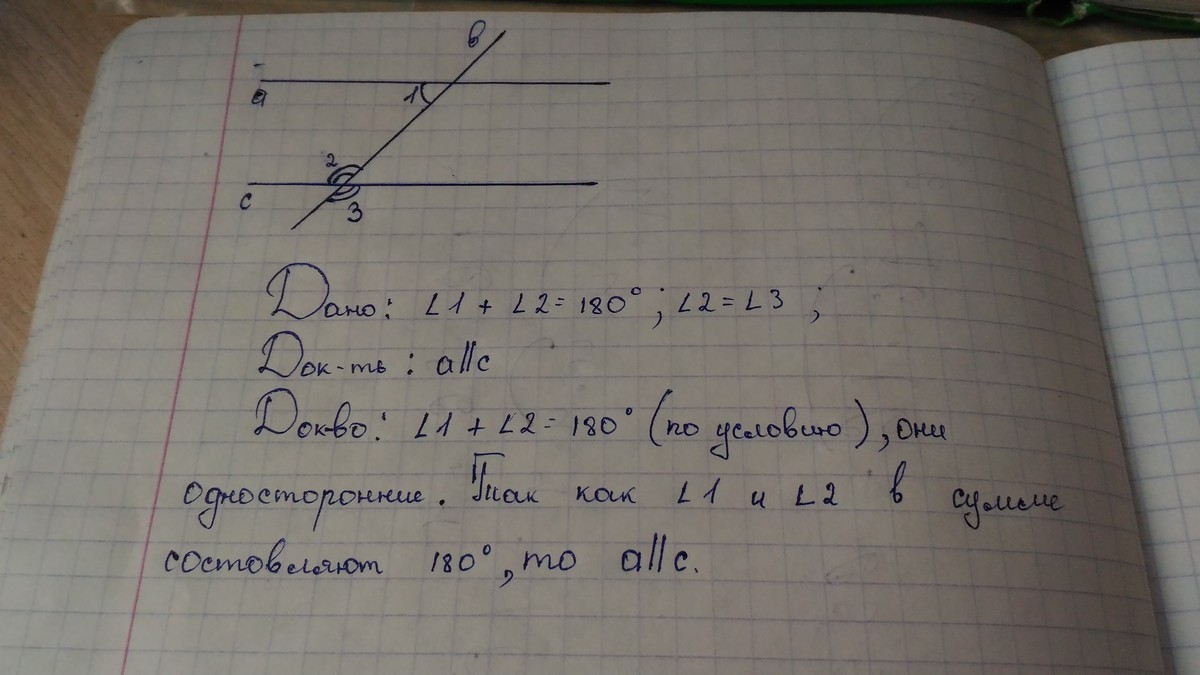 в
а
1
2
с
3
Дано: ∠1 + ∠2 = 180°; ∠2 = ∠3 ;
Док-ть : a||c
Докво: ∠1 + ∠2 = 180° (по условию), они
односторонние. Так как ∠1 и ∠2 в сумме
состовляют 180°, то a||c.